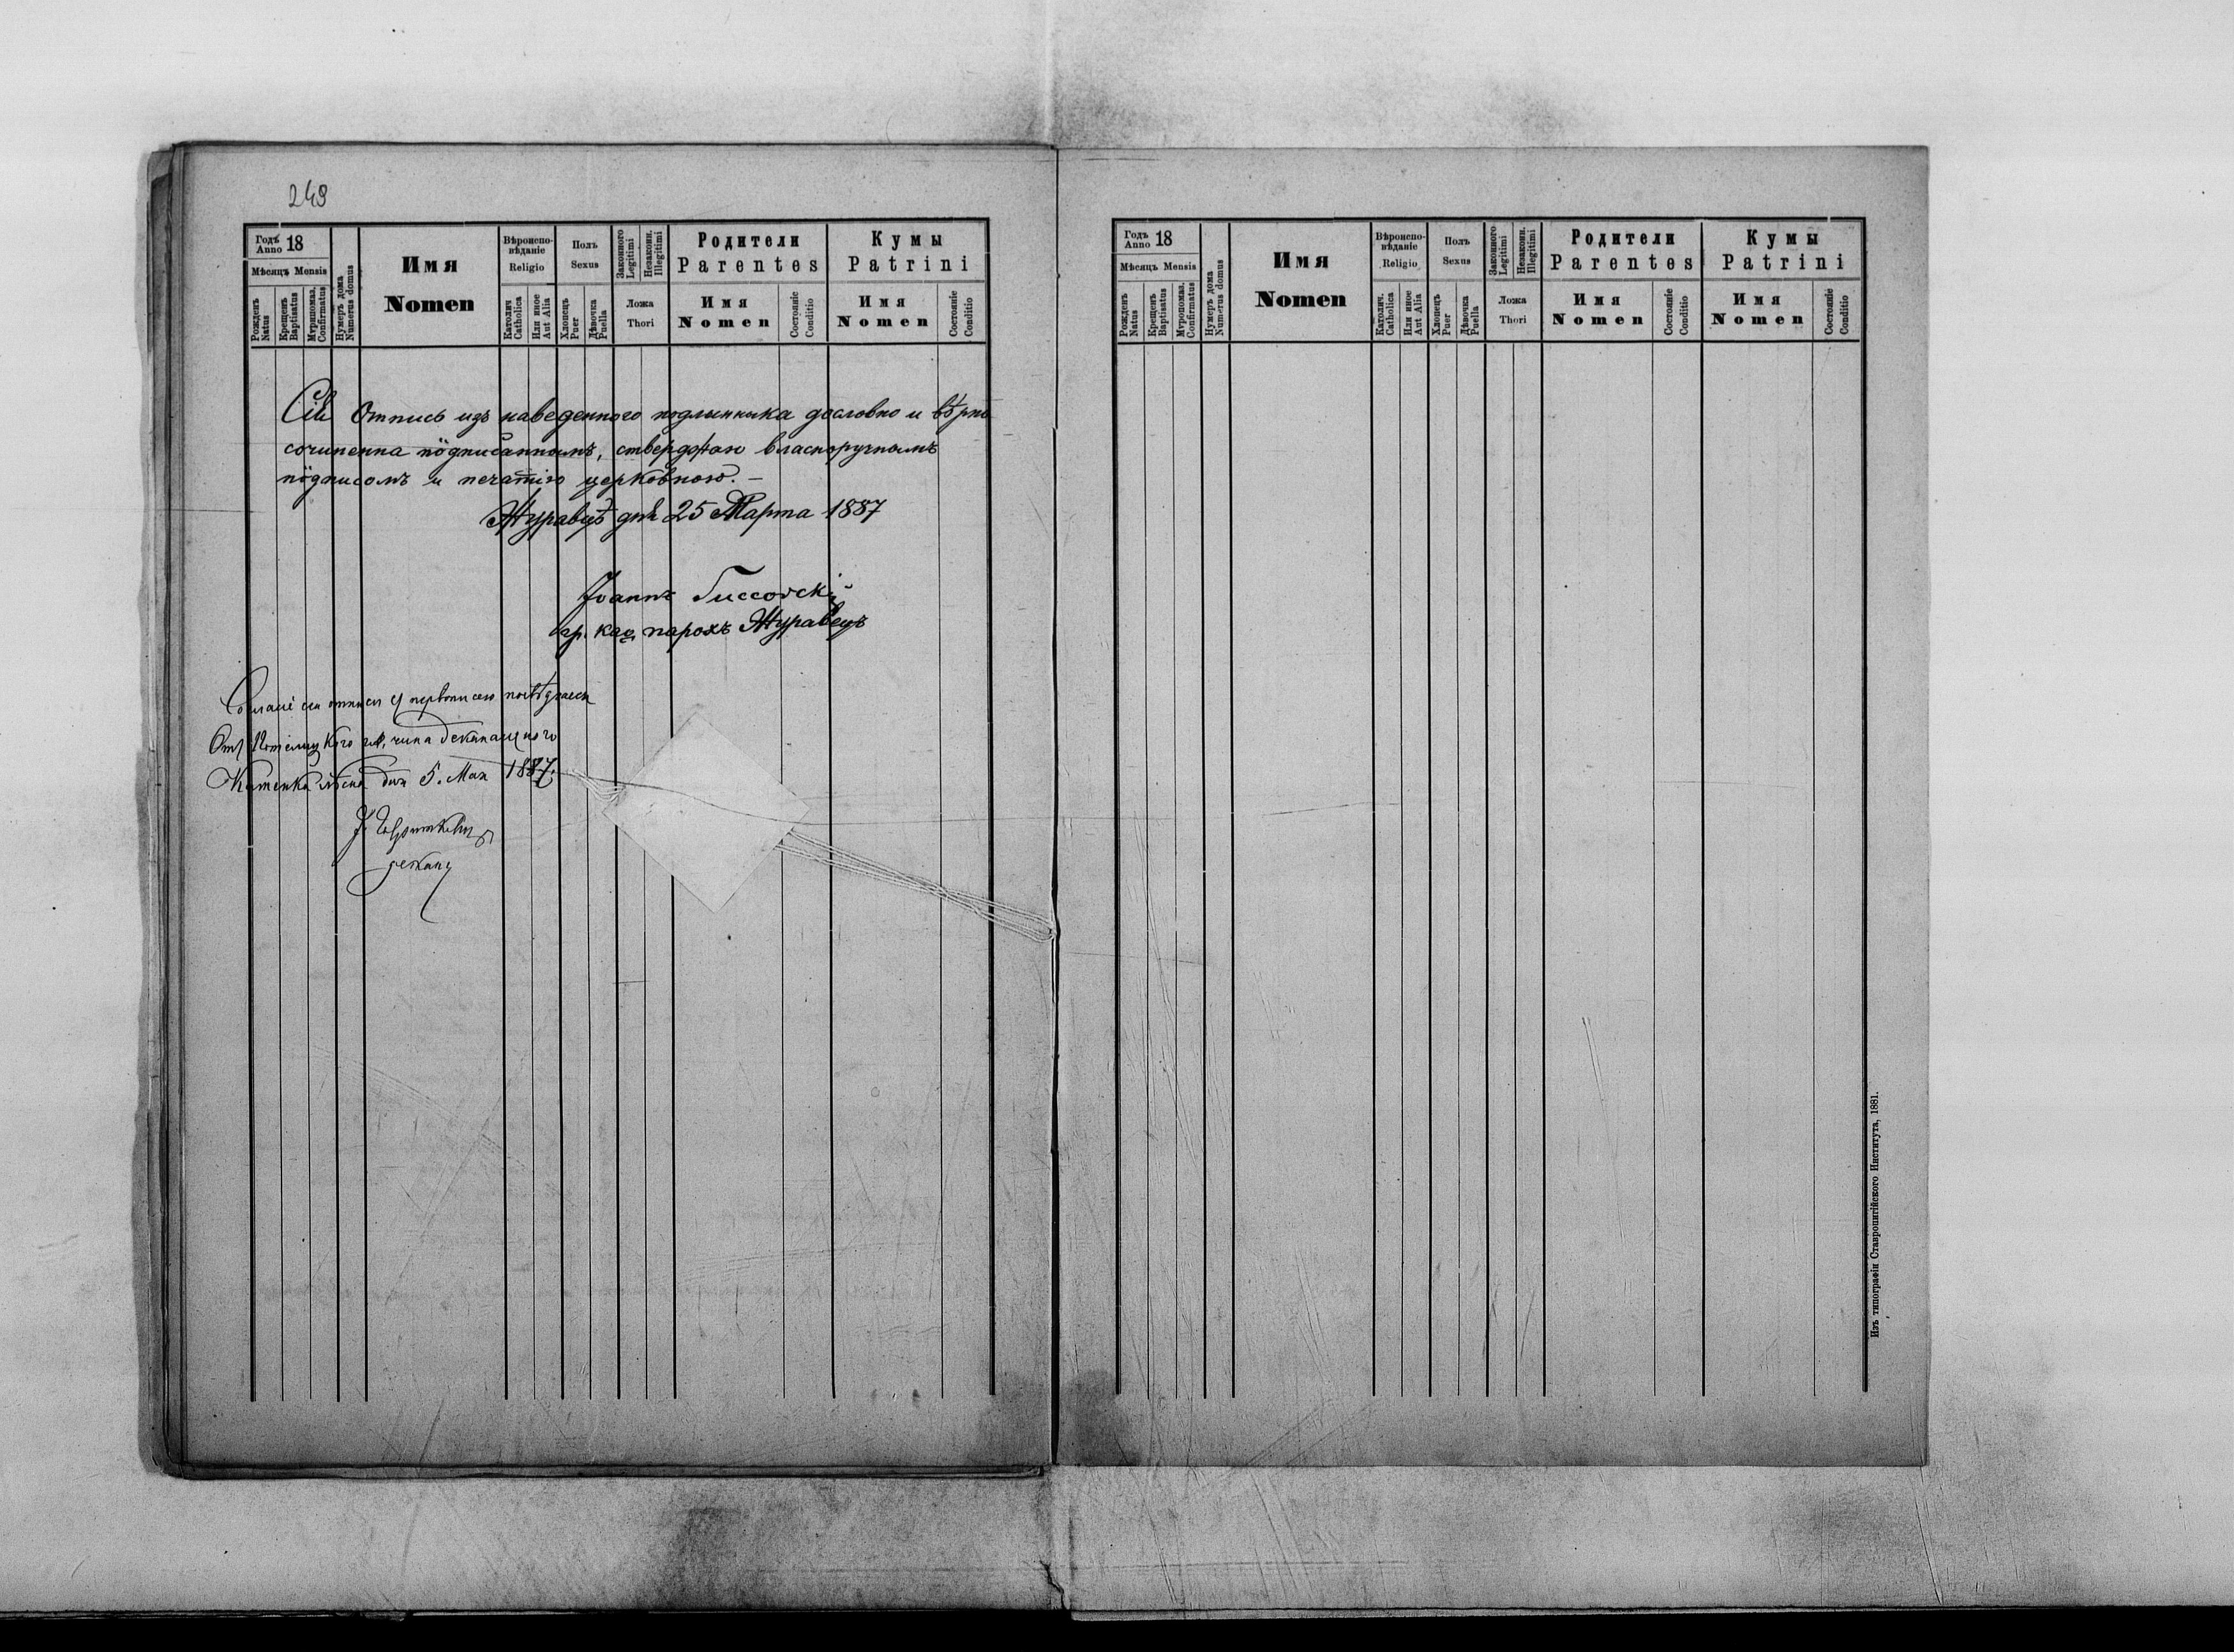 249
Годъ Anno 18
Мѣсяцъ Mensis
Рожденъ Natus
Крещенъ Baptisatus
Мѵропомаз. Confirmatus
Нумеръ дома Numerus domus
Имя
Nomen
Вѣроиспо-
вѣданіе
Religio
Католич Catholica
Или иное Aut Alia
Полъ
Sexus
Хлопецъ Puer
Дѣвочка Puella
Законного Legitimi
Незаконн. Illegitimi
Ложа
Thori
Родители
Parentes
Имя
Nomen
Состояніе Conditio
Кумы
Patrini
Имя
Nomen
Состояніе Conditio
Сія Отпись изъ наведенного подлинника дословно и вѣрно
сочиненна пôдписаннымъ, стверджаю власноручнымъ
пôдписомъ и печатію церковною. –
Журавцѣ дня 25 Марта 1887
Іоаннъ Гиссовскій
гр. каѳ. парохъ Журавецъ
отписи первописею
Отъ чина
дня 5. Мая 1887.
деканъ
Годъ Anno 18
Мѣсяцъ Mensis
Рожденъ Natus
Крещенъ Baptisatus
Мѵропомаз. Confirmatus
Нумеръ дома Numerus domus
Имя
Nomen
Вѣроиспо-
вѣданіе
Religio
Католич. Catholica
Или иное Aut Alia
Полъ
Sexus
Хлопецъ Puer
Дѣвочка Puella
Законного Legitimi
Незаконн. Illegitimi
Ложа
Thori
Родители
Parentes
Имя
Nomen
Состояніе Conditio
Кумы
Patrini
Имя
Nomen
Состояніе Conditio
Изъ типографіи Ставропигійского Института, 1881.